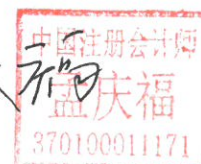 中国注册会计师
孟庆福
福
370100011171